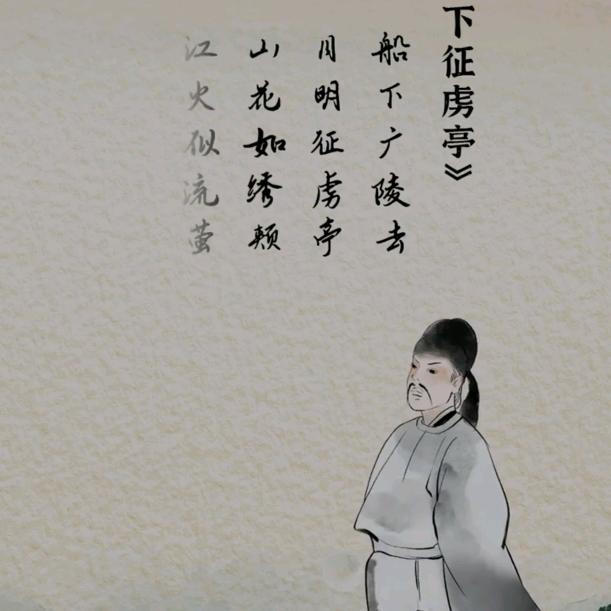 下征虏亭》
船下广陵去
月明征虏亭
山花如绣颊
江火似流萤